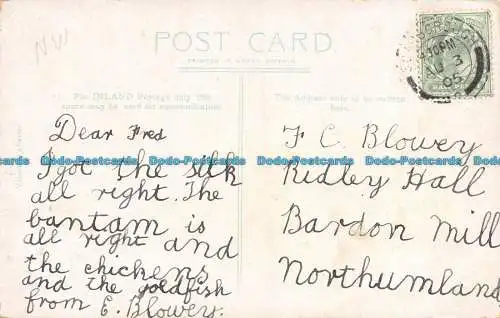 NW
POST CARD.
PRINTED IN GREAT BRITAIN
For INLAND Postage only this
space may be used for communication
The Address only to be written
here.
10 PM
3
05
Dear Fred
I got the silk
all right. The
bantam is
all right and
the chickens
and the goldfish
from E. Blowey.
F C. Blowey
Ridley Hall
Bardon Mill
Northumland
Dodo-Postcards Dodo-Postcards Dodo-Postcards